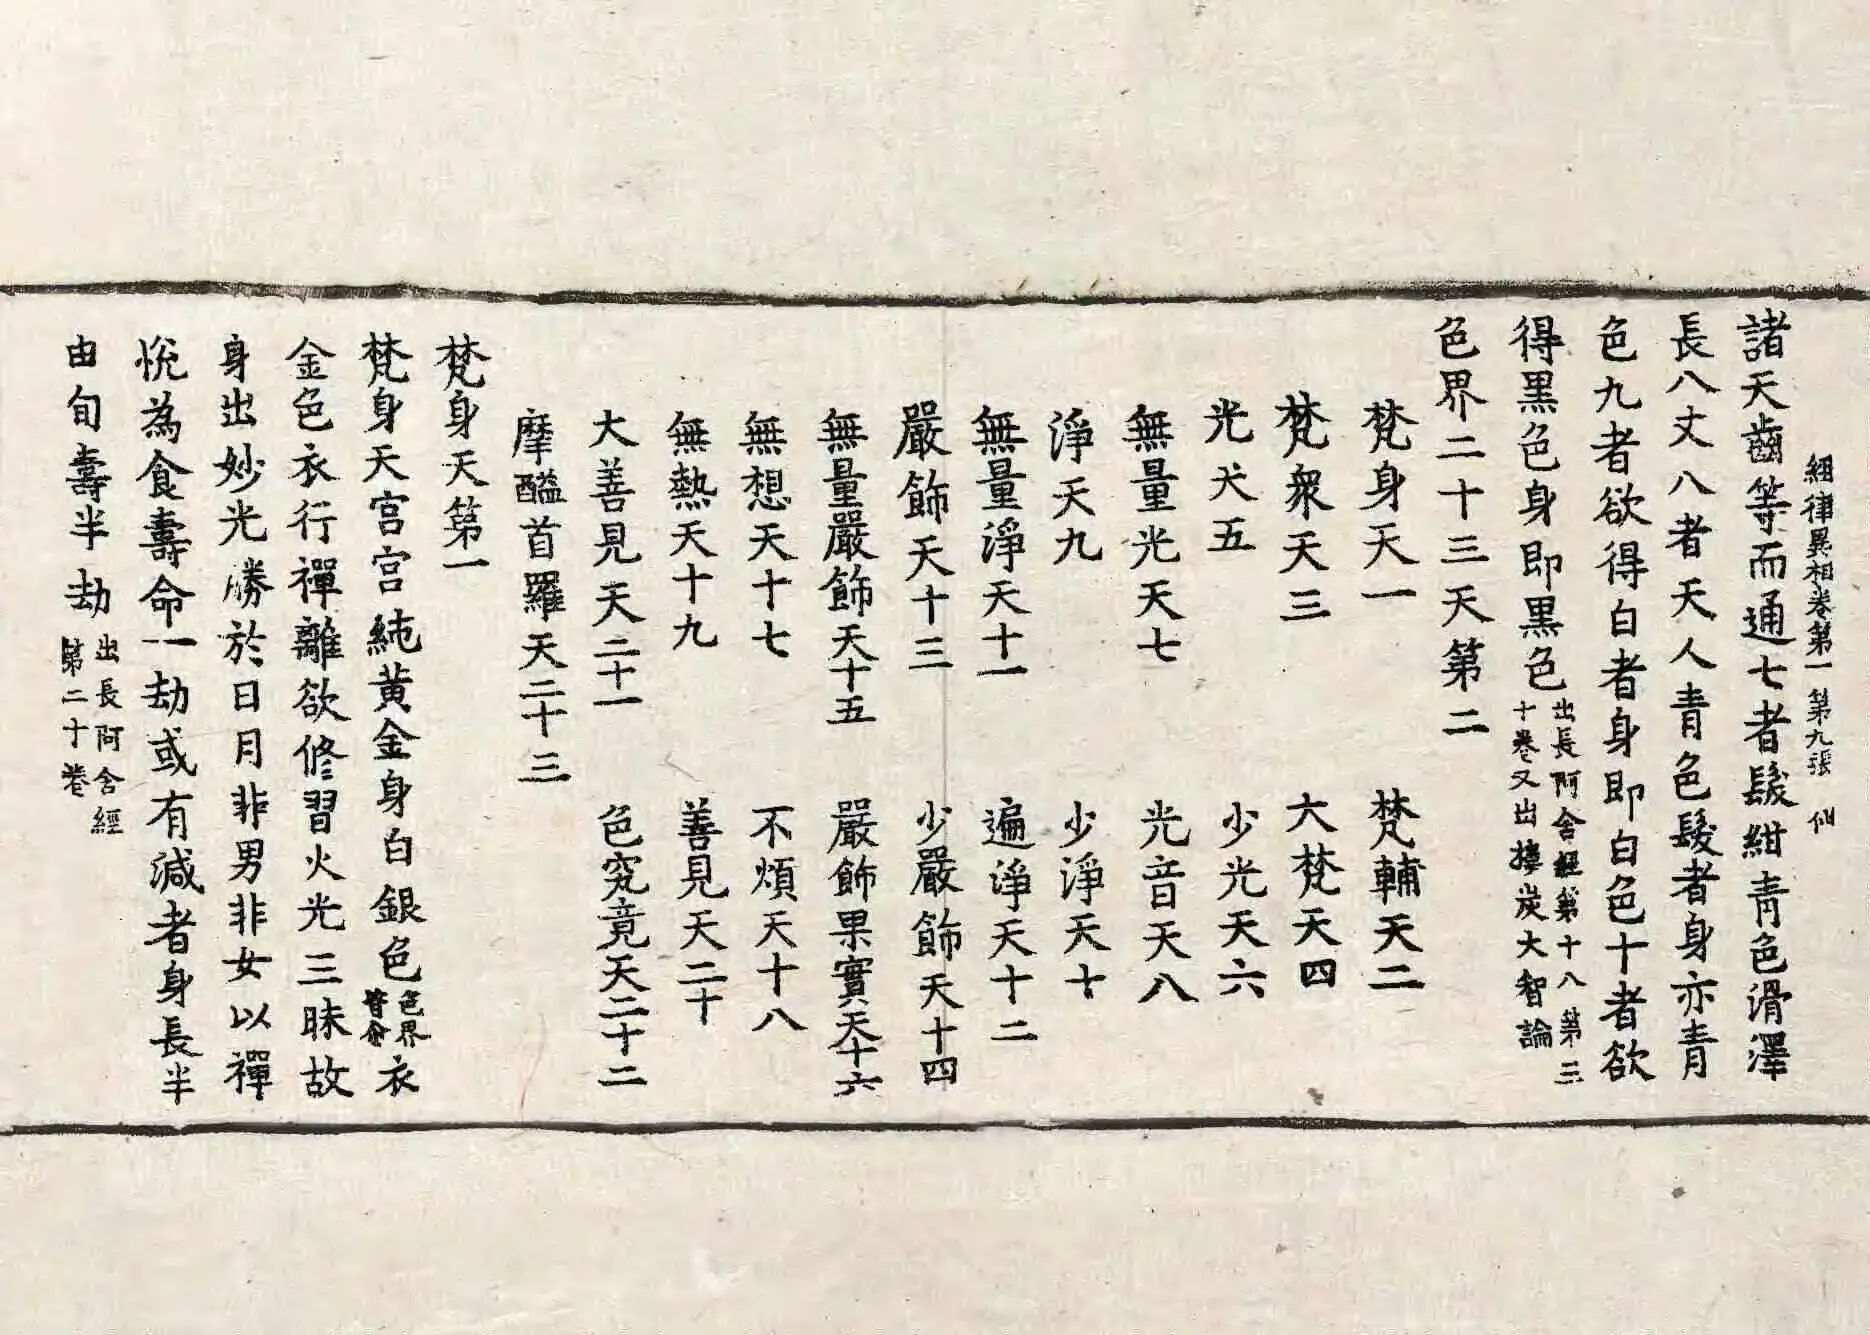 經律異相卷第一 第九張 仙
諸天齒等而通七者髮紺青色滑澤
長八丈八者天人青色髮者身亦青
色九者欲得白者身即白色十者欲
得黑色身即黑色出長阿含經第十八第三
十卷又出樓炭大智論
色界二十三天第二
梵身天一 梵輔天二
梵衆天三 大梵天四
光天五 少光天六
無量光天七 光音天八
淨天九 少淨天十
無量淨天十一 遍淨天十二
嚴飾天十三 少嚴飾天十四
無量嚴飾天十五 嚴飾果實天十六
無想天十七 不煩天十八
無熱天十九 善見天二十
大善見天二十一 色究竟天二十二
摩醯首羅天二十三
梵身天第一
梵身天宮宮純黃金身白銀色色界皆爾衣
金色衣行禪離欲修習火光三昧故
身出妙光勝於日月非男非女以禪
悅為食壽命一劫或有減者身長半
由旬壽半劫出長阿含經
第二十卷